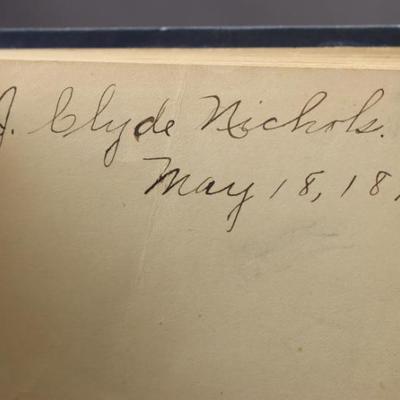 J. Clyde Nichols.
May 18, 18